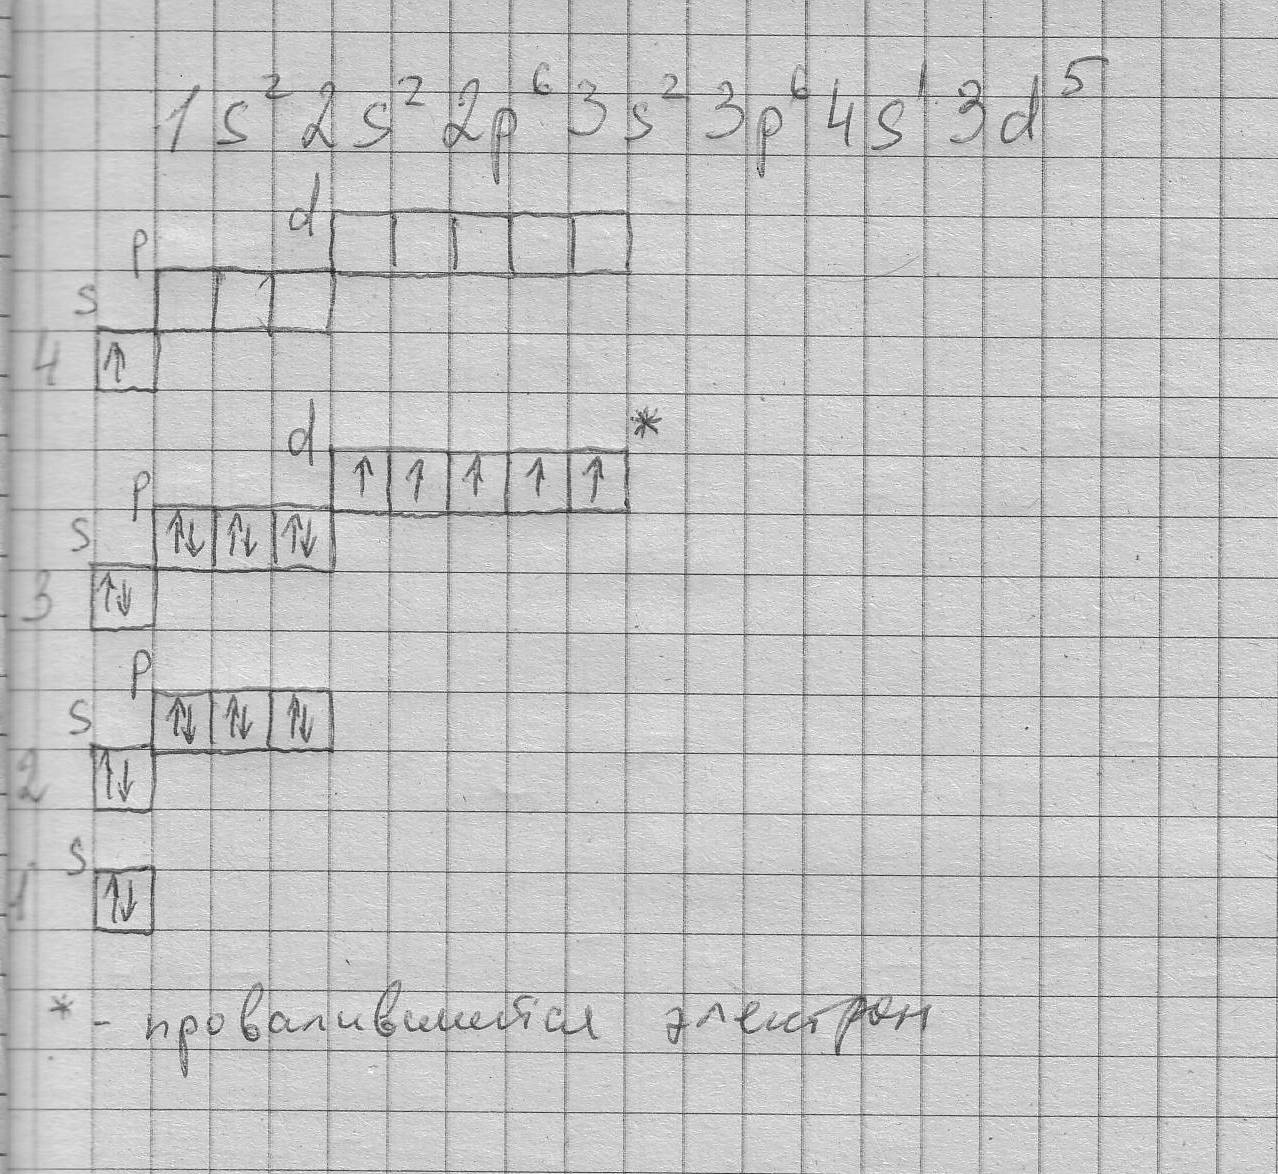 1s² 2s² 2p⁶ 3s² 3p⁶ 4s¹ 3d⁵
d
p
s
4 ↑
d *
↑ ↑ ↑ ↑ ↑
p
↑↓ ↑↓ ↑↓
s
3 ↑↓
p
↑↓ ↑↓ ↑↓
s
2 ↑↓
s
1 ↑↓
* - провалившийся электрон